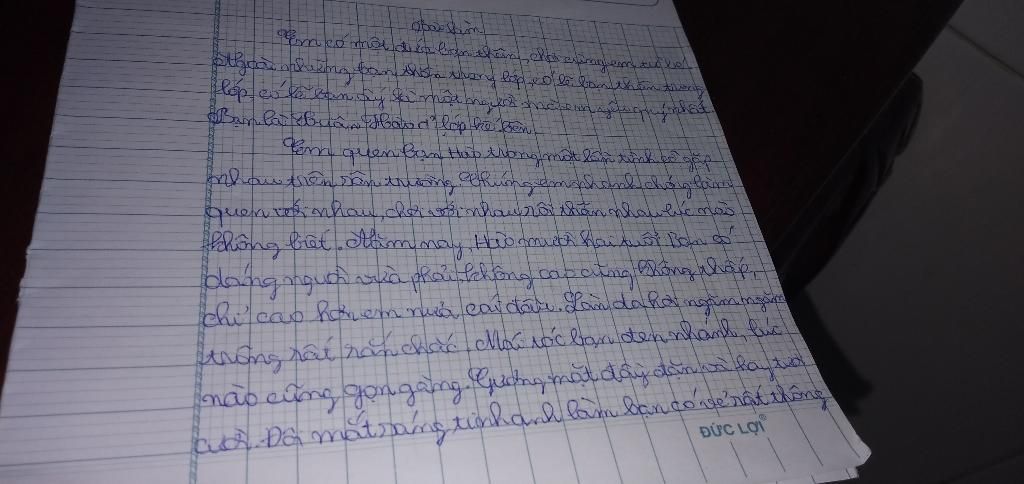 Bài làm
Em có một đứa bạn thân, chơi cùng em
Ngoài những bạn thân trong lớp, có lẽ bạn thân trong
lớp, có lẽ bạn ấy là một người mà em yêu quý nhất
Bạn là Xuân Hào ở lớp kế bên.
Em quen bạn Hào trong một lần tình cờ gặp
nhau trên sân trường. Chúng em nhanh chóng làm
quen với nhau, chơi với nhau rồi thân nhau lúc nào
không biết. Năm nay, Hào mười hai tuổi. Bạn có
dáng người vừa phải không cao cũng không thấp,
chỉ cao hơn em nửa cái đầu. Làn da hơi ngăm ngăm
trông rất rắn chắc. Mái tóc bạn đen nhánh, lúc
nào cũng gọn gàng. Gương mặt đầy đặn và hay tươi
cười. Đôi mắt sáng, tinh anh làm bạn có vẻ rất thông
ĐỨC LỢI